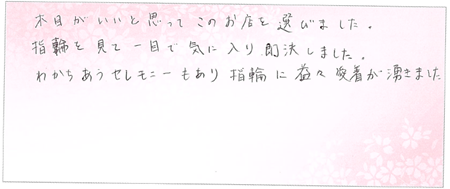 木目がいいと思ってこのお店を選びました。
指輪を見て一目で気に入り即決しました。
わかちあうセレモニーもあり指輪に益々愛着が湧きました